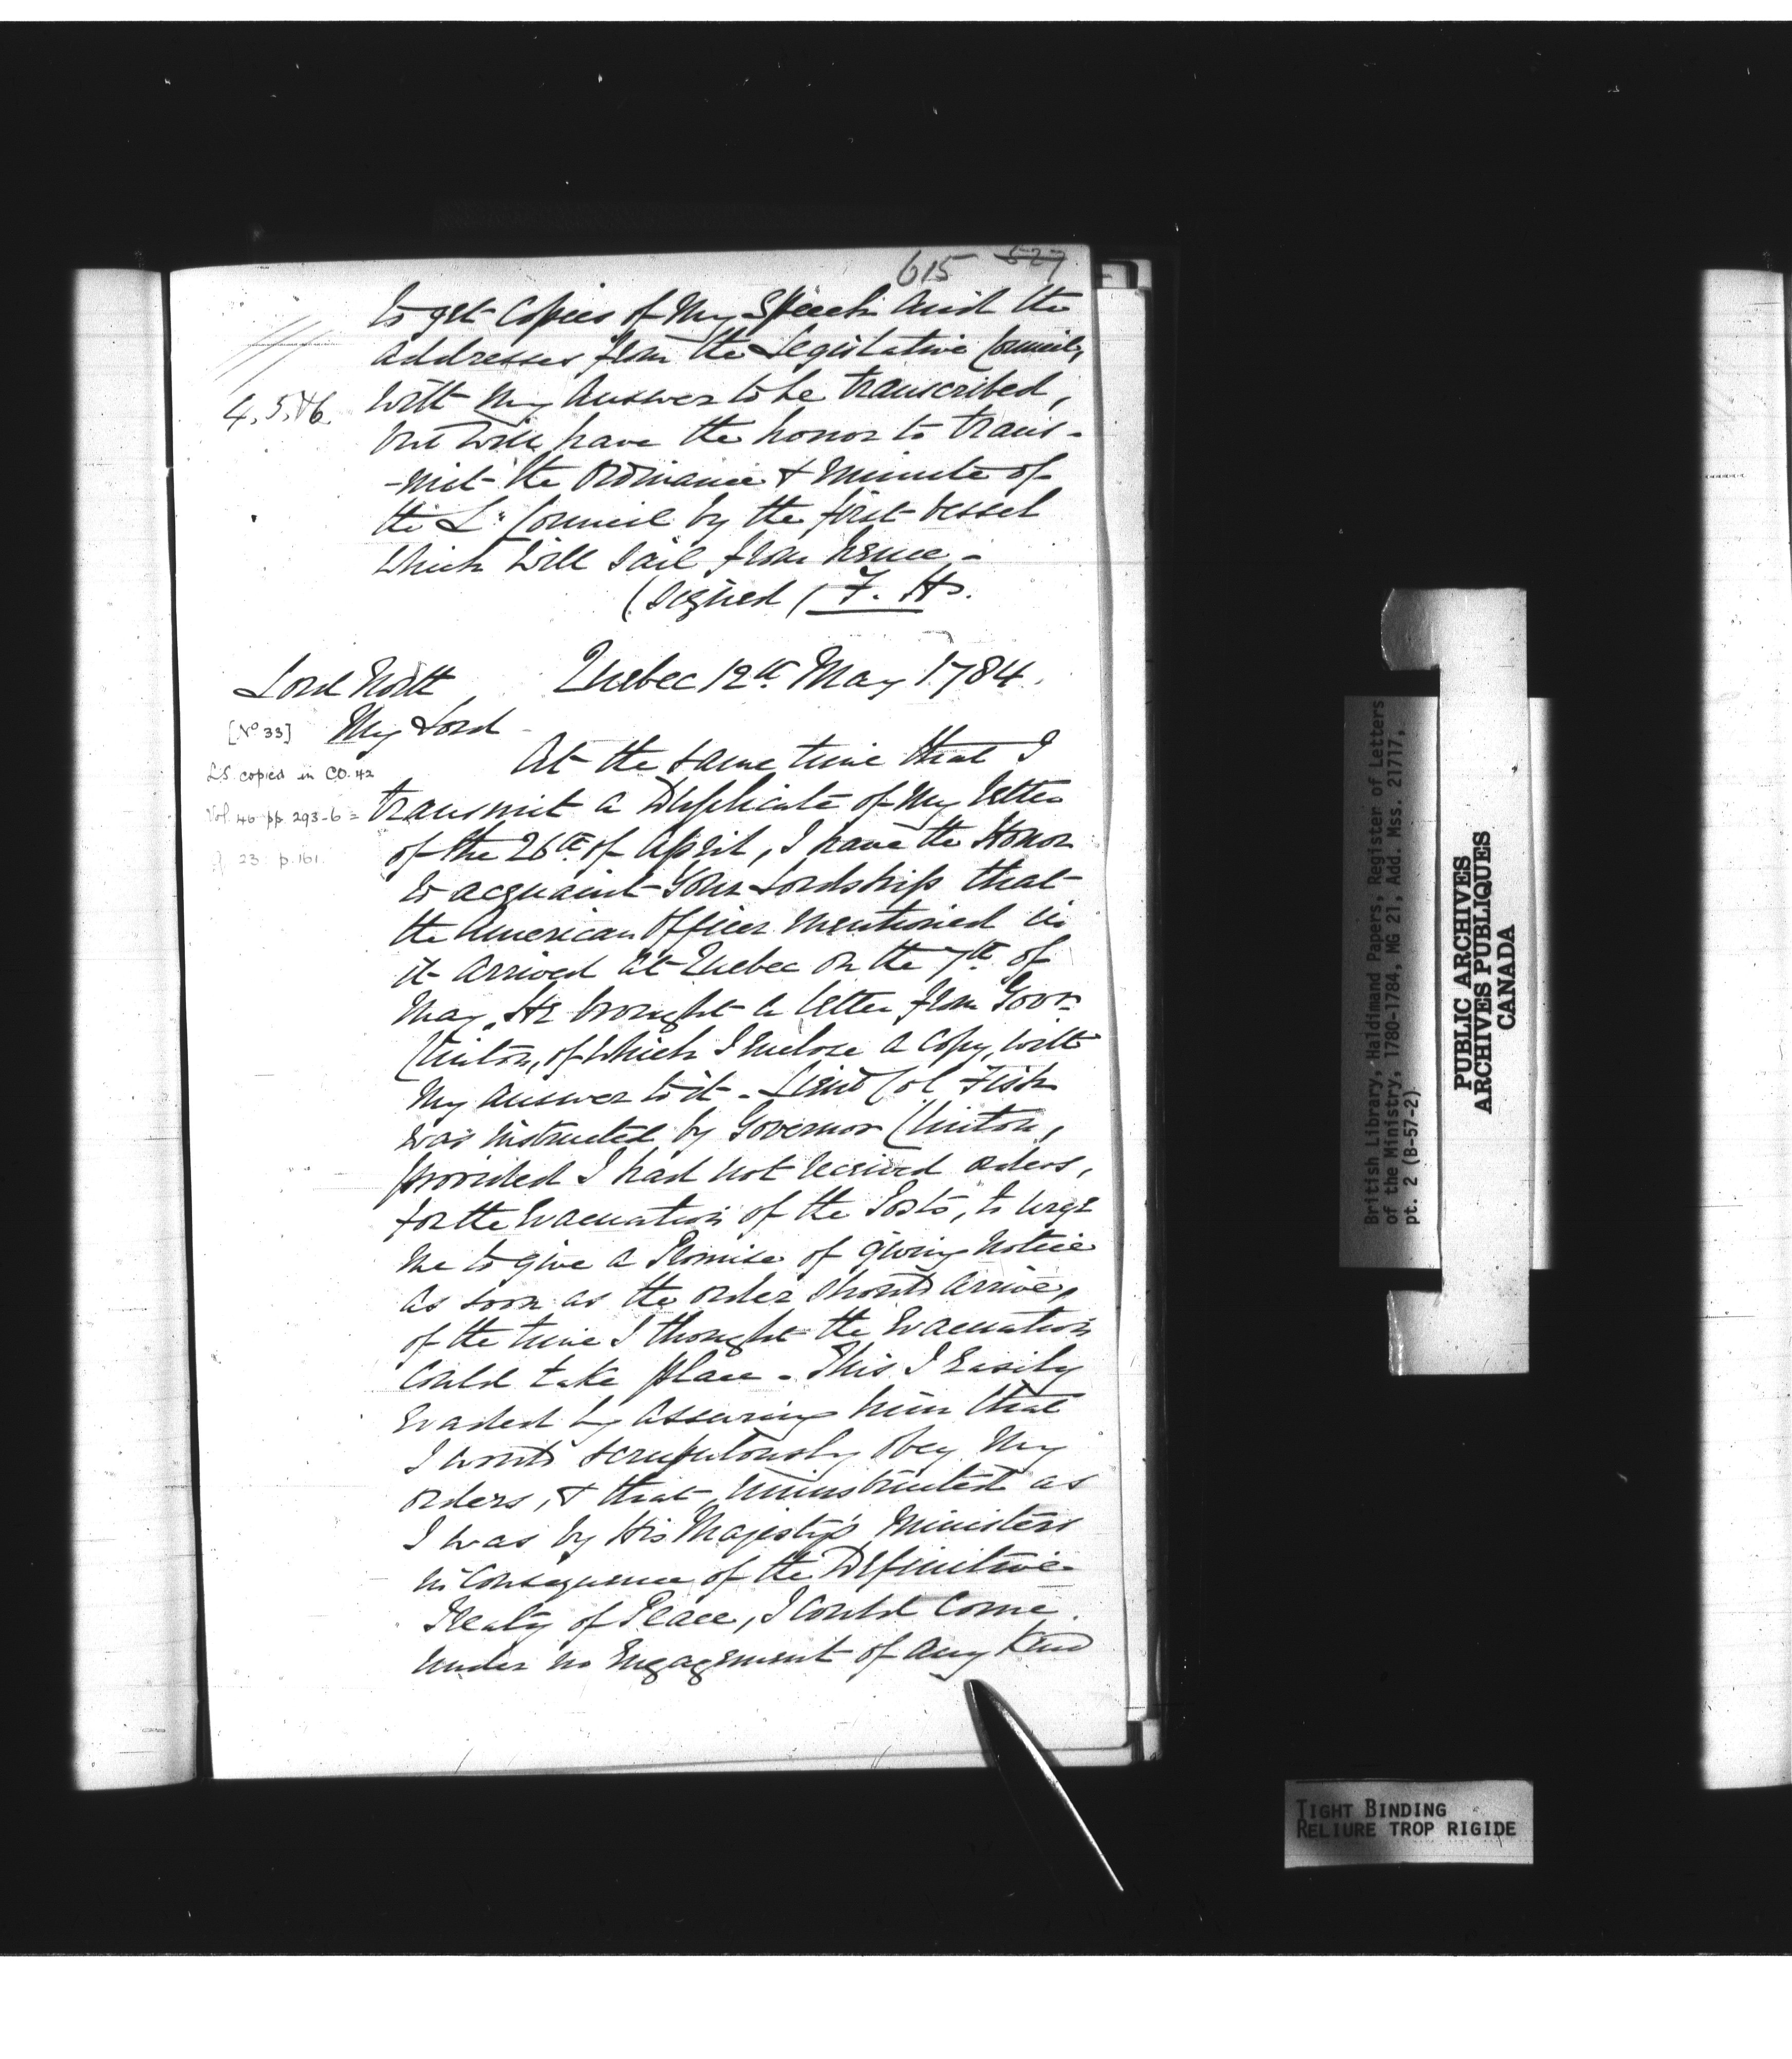 615 527
to get Copies of My Speech and the
addresses from the Legislative Council,
4. 5. & 6. with My Answer to be transcribed,
but will have the honor to trans-
-mit the Ordinance & Minute of
the L: Council by the first Vessel
which will sail from hence -
(signed) F. H.
Lord North Quebec 12th May 1784.
[No 33] My Lord
At the same time that I
LS. copied in CO. 42
transmit a Duplicate of My letter
Vol. 46 pp. 293-6 =
of the 26th of April, I have the Honor
23. p. 161.
to acquaint Your Lordship that
the American Officer mentioned in
it arrived at Quebec on the 7th of
May. He brought a letter from Govr
Clinton, of which I enclose a Copy, with
My Answer to it - Lieut Col Fish
was instructed by Governor Clinton,
provided I had not received orders,
for the Evacuation of the Posts, to urge
me to give a Promise of giving notice
as soon as the order should arrive,
of the time I thought the Evacuation
could take place - This I easily
evaded by assuring him that
I would scrupulously obey My
orders, & that uninstructed as
I was by His Majesty's Ministers
in consequence of the Definitive
Treaty of Peace, I could come
under no Engagement of any kind
British Library, Haldimand Papers, Register of Letters
of the Ministry, 1780-1784, MG 21, Add. Mss. 21717,
pt. 2 (B-57-2)
PUBLIC ARCHIVES
ARCHIVES PUBLIQUES
CANADA
TIGHT BINDING
RELIURE TROP RIGIDE